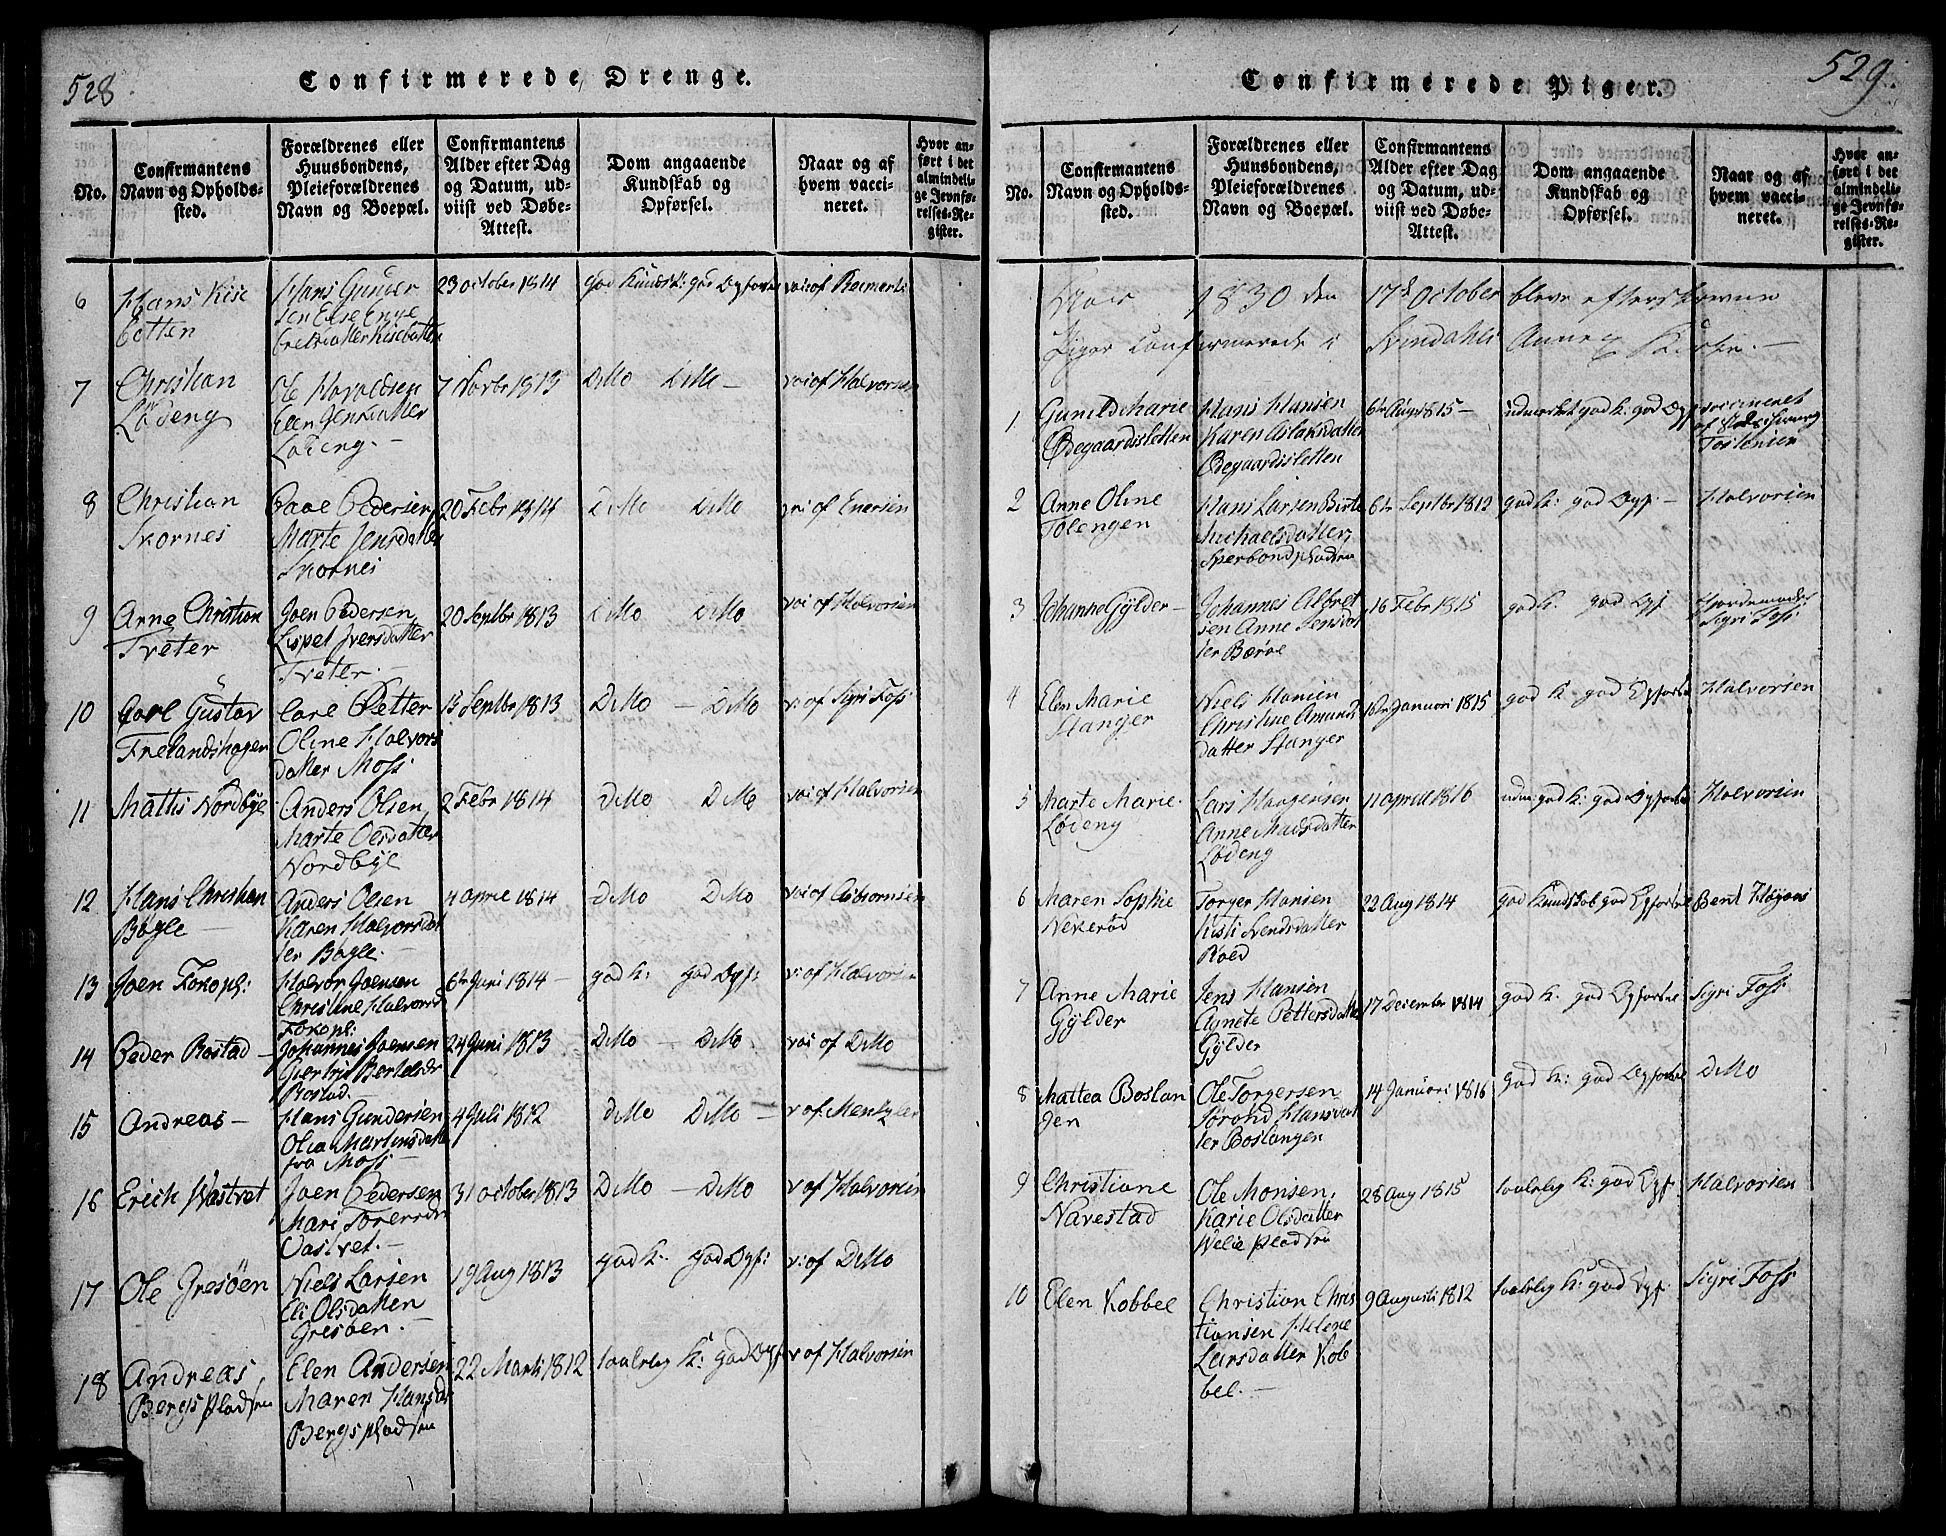 528
Confirmerede Drenge.
No.
Confirmantens
Navn og Opholds-
sted.
Forældrenes eller
Huusbondens,
Pleieforældrenes
Navn og Boepæl.
Confirmantens
Alder efter Dag
og Datum, ud-
viist ved Døbe-
Attest.
Dom angaaende
Kundskab og
Opførsel.
Naar og af
hvem vacci-
neret.
Hvor an-
ført i det
almindeli-
ge Jevnfø-
relses-Re-
gister.
6
Hans Kise
botten
Hans Gunder
sen Else Enge
bretsdatter Kisebotten
23 october 1814
god Kundsk: god Opførsel
7
Christian
Lödeng
Ole Haraldsen
Elen Jensdatter
Lödeng.-
7 Novbr 1813
DiMo DiMo -
vai of Halvorsen
8
Christian
Skornes
Povel Pedersen
Marte Jensdatter
Skornes
20 Febr 1814
DiMo DiMo
of Enersen
9
Arne Christian
Tveter
Joen Pedersen
Lispet Iversdatter
Tveter.-
20 Septbr 1813
DiMo DiMo
vai of Halvorsen
10
Carl Gustav
Frelandshagen
Carl Petter
Oline Halvors
datter Moss
13 Septbr 1813
DiMo - DiMo
v: of Sigri Foss
11
Mathis Nordbye
Anders Olsen
Marte Olsdatter
Nordbye
2 Febr 1814
DiMo DiMo
vai of Halvorsen
12
Hans Christian
Bøgle -
Anders Olsen
Karen Halvorsdat
ter Bøgle.-
4 april 1814
DiMo DiMo
vai of Asbiornsen
13
Joen Fokopl:
Halvor Joensen
Christine Halvorsd
Fokopl:
6te Juni 1814 -
god K: god Opf:
v: of Halvorsen
14
Peder Rostad -
Johannes Joensen
Giertrud Bertelsdr
Rostad.
24 Juni 1813
DiMo - DiMo
vai of DiMo
15
Andreas -
Hans Gundersen
Olia Martinsdatter
fra Moss -
4 Juli 1812
DiMo DiMo -
v of: Mentzler
16
Erich Vastvet
Joen Pedersen
Mari Toresdr
Vastvet.-
31 october 1813
DiMo - DiMo
v of Halvorsen
17
Ole Gresöen
Niels Larsen
Eli Olsdatter
Gresöen.-
19 Aug 1813
god K: god Opf:
v: of DiMo
18
Andreas
Bergs pladsen
Elen Andersen
Maren Hansdr
Bergs pladsen
22 Marti 1812
taalelig K: god Opf
v of Halvorsen
529.
Confirmerede Piger.
No.
Confirmantens
Navn og Opholds-
sted.
Forældrenes eller
Huusbondens,
Pleieforældrenes
Navn og Boepæl.
Confirmantens
Alder efter Dag
og Datum, ud-
viist ved Døbe-
Attest.
Dom angaaende
Kundskab og
Opførsel.
Naar og af
hvem vacci-
neret.
Hvor an-
ført i det
almindeli-
ge Jevnfø-
relses-Re-
gister.
Aar 1830 den 17de October bleve efterskrevne
Piger confirmerede i Svindahls Annex Kirke.-
1
Gunild Marie
Ødegaardsletten
Hans Hansen
Karen Aslaksdatter
Ødegaardsletten
6te Aug 1815 -
udmerket god K: god Opf
vaccineret
2
Anne Oline
Tolengen
Hans Larsen Birte
Michaelsdatter,
Sperbond pladsen
6te Septbr 1812
god K: god Opf.-
Halvorsen
3
Johanne Gylder -
Johannes Albret
sen Anne Jensdat
ter Bærøe
16 Febr 1815
god K: god Opf.
Jordemoder
Sigri Foss
4
Elen Marie
Stanger
Niels Hansen
Christine Amunds
datter Stanger
16de Januari 1815
god K. god Opførsel
Halvorsen
5
Marte Marie.
Lødeng
Lars Haagensen
Anne Madsdatter
Lødeng
11 april 1816
udm: god K: god Opførsel
Halvorsen
6
Maren Sophie
Nekerød
Torger Hansen
Kisti Svendsdatter
Roed
22 Aug 1814
god Kundskab god Opførsel
Bent Høyaas
7
Anne Marie
Gylder
Jens Hansen
Agnete Pettersdatter
Gylder
17 December 1814
god K: god Opførsel
Sigri Foss
8
Mattea Boslan
gen
Ole Torgersen
Jørond Hansdat
ter Boslangen
14 Januari 1816
god K: god Opførsel
DiMo
9
Christiane
Navestad
Ole Monsen,
Karie Olsdatter
Velie pladsen
28 Aug 1815
taalelig K: god Opf.
Halvorsen
10
Elen Kobbel
Christian Chris
tiansen Helene
Larsdatter Kob
bel.-
9 Augusti 1812
taalelig K: god Opf.
Sigri Foss